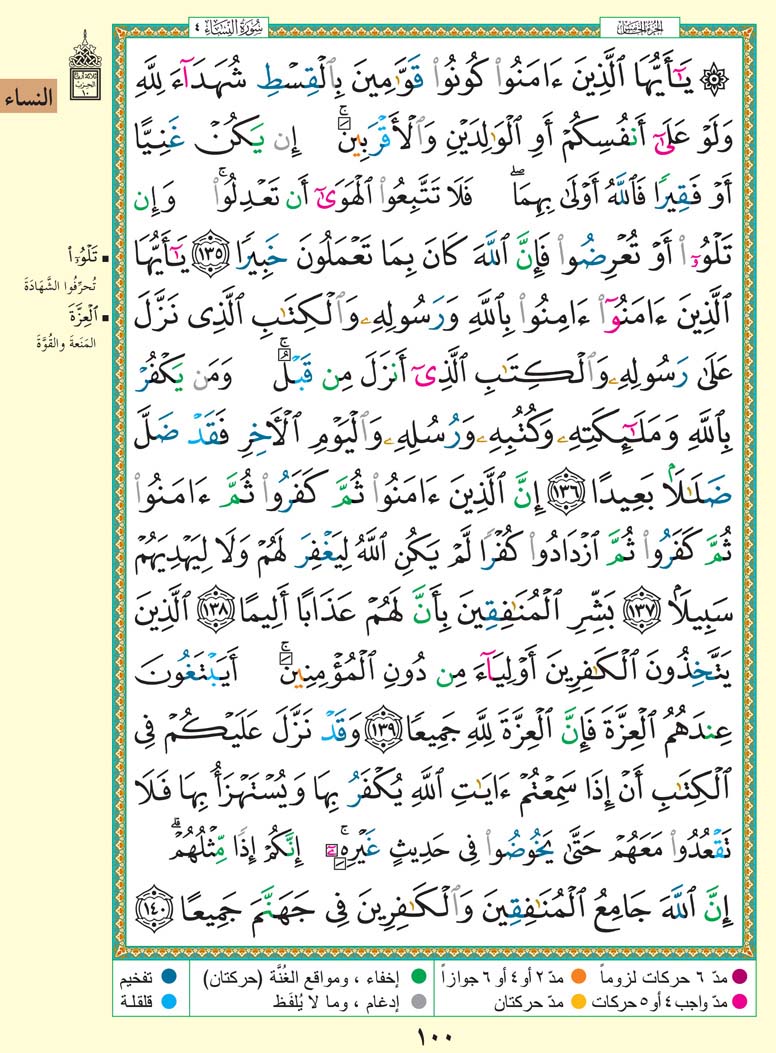 سُورَةُ النِّسَاءِ ٤
الجُزءُ الخَامِسُ
ثَلَاثَةُ أَرْبَاعِ
الحِزْب
١٠
النساء
۞ يَـٰٓأَيُّهَا ٱلَّذِينَ ءَامَنُوا۟ كُونُوا۟ قَوَّٰمِينَ بِٱلْقِسْطِ شُهَدَآءَ لِلَّهِ
وَلَوْ عَلَىٰٓ أَنفُسِكُمْ أَوِ ٱلْوَٰلِدَيْنِ وَٱلْأَقْرَبِينَ ۚ إِن يَكُنْ غَنِيًّا
أَوْ فَقِيرًا فَٱللَّهُ أَوْلَىٰ بِهِمَا ۖ فَلَا تَتَّبِعُوا۟ ٱلْهَوَىٰٓ أَن تَعْدِلُوا۟ ۚ وَإِن
تَلْوُۥٓا۟ أَوْ تُعْرِضُوا۟ فَإِنَّ ٱللَّهَ كَانَ بِمَا تَعْمَلُونَ خَبِيرًا ١٣٥ يَـٰٓأَيُّهَا
ٱلَّذِينَ ءَامَنُوٓا۟ ءَامِنُوا۟ بِٱللَّهِ وَرَسُولِهِۦ وَٱلْكِتَـٰبِ ٱلَّذِى نَزَّلَ
عَلَىٰ رَسُولِهِۦ وَٱلْكِتَـٰبِ ٱلَّذِىٓ أَنزَلَ مِن قَبْلُ ۚ وَمَن يَكْفُرْ
بِٱللَّهِ وَمَلَـٰٓئِكَتِهِۦ وَكُتُبِهِۦ وَرُسُلِهِۦ وَٱلْيَوْمِ ٱلْـَٔاخِرِ فَقَدْ ضَلَّ
ضَلَـٰلًۢا بَعِيدًا ١٣٦ إِنَّ ٱلَّذِينَ ءَامَنُوا۟ ثُمَّ كَفَرُوا۟ ثُمَّ ءَامَنُوا۟
ثُمَّ كَفَرُوا۟ ثُمَّ ٱزْدَادُوا۟ كُفْرًا لَّمْ يَكُنِ ٱللَّهُ لِيَغْفِرَ لَهُمْ وَلَا لِيَهْدِيَهُمْ
سَبِيلًۢا ١٣٧ بَشِّرِ ٱلْمُنَـٰفِقِينَ بِأَنَّ لَهُمْ عَذَابًا أَلِيمًا ١٣٨ ٱلَّذِينَ
يَتَّخِذُونَ ٱلْكَـٰفِرِينَ أَوْلِيَآءَ مِن دُونِ ٱلْمُؤْمِنِينَ ۚ أَيَبْتَغُونَ
عِندَهُمُ ٱلْعِزَّةَ فَإِنَّ ٱلْعِزَّةَ لِلَّهِ جَمِيعًا ١٣٩ وَقَدْ نَزَّلَ عَلَيْكُمْ فِى
ٱلْكِتَـٰبِ أَنْ إِذَا سَمِعْتُمْ ءَايَـٰتِ ٱللَّهِ يُكْفَرُ بِهَا وَيُسْتَهْزَأُ بِهَا فَلَا
تَقْعُدُوا۟ مَعَهُمْ حَتَّىٰ يَخُوضُوا۟ فِى حَدِيثٍ غَيْرِهِۦٓ ۚ إِنَّكُمْ إِذًا مِّثْلُهُمْ ۗ
إِنَّ ٱللَّهَ جَامِعُ ٱلْمُنَـٰفِقِينَ وَٱلْكَـٰفِرِينَ فِى جَهَنَّمَ جَمِيعًا ١٤٠
▪ تَلْوُۥٓا۟
تُحرِّفُوا الشَّهَادَةَ
▪ ٱلْعِزَّةَ
المَنَعَةَ والقُوَّةَ
مدّ ٦ حركات لزوماً ● مدّ ٢ أو ٤ أو ٦ جوازاً ● إخفاء ، ومواقع الغُنَّة (حركتان) ● تفخيم
مدّ واجب ٤ أو ٥ حركات ● مدّ حركتان ● إدغام ، وما لا يُلفَظ ● قلقلة
١٠٠